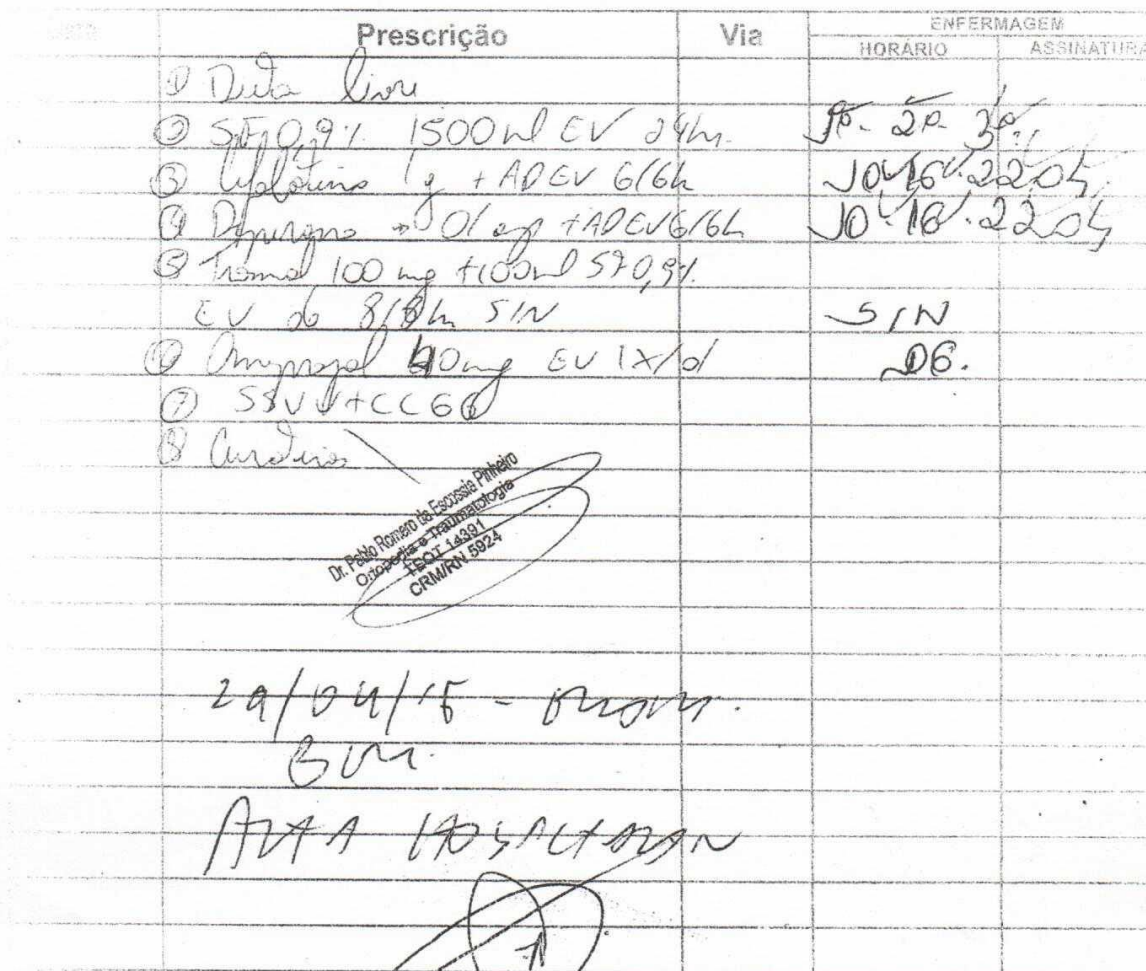 Prescrição Via ENFERMAGEM
HORÁRIO ASSINATURA
① Dieta livre
② SF 0,9% 1500ml EV 24h. 1ª- 2ª- 3ª.
③ Cefalotina 1g + AD EV 6/6h 10 16 22 04
④ Dipirona → 01 amp + AD EV 6/6h 10 16 22 04
⑤ Tramal 100 mg + 100ml SF0,9%
EV de 8/8h S/N S/N
⑥ Omeprazol 40mg EV 1x/d 06.
⑦ SSVV + CCGG
⑧ Curativo
Dr. Pablo Romero da Escossia Pinheiro
Ortopedia e Traumatologia
TEOT 14391
CRM/RN 5924
29/04/15 -
ALTA HOSPITALAR